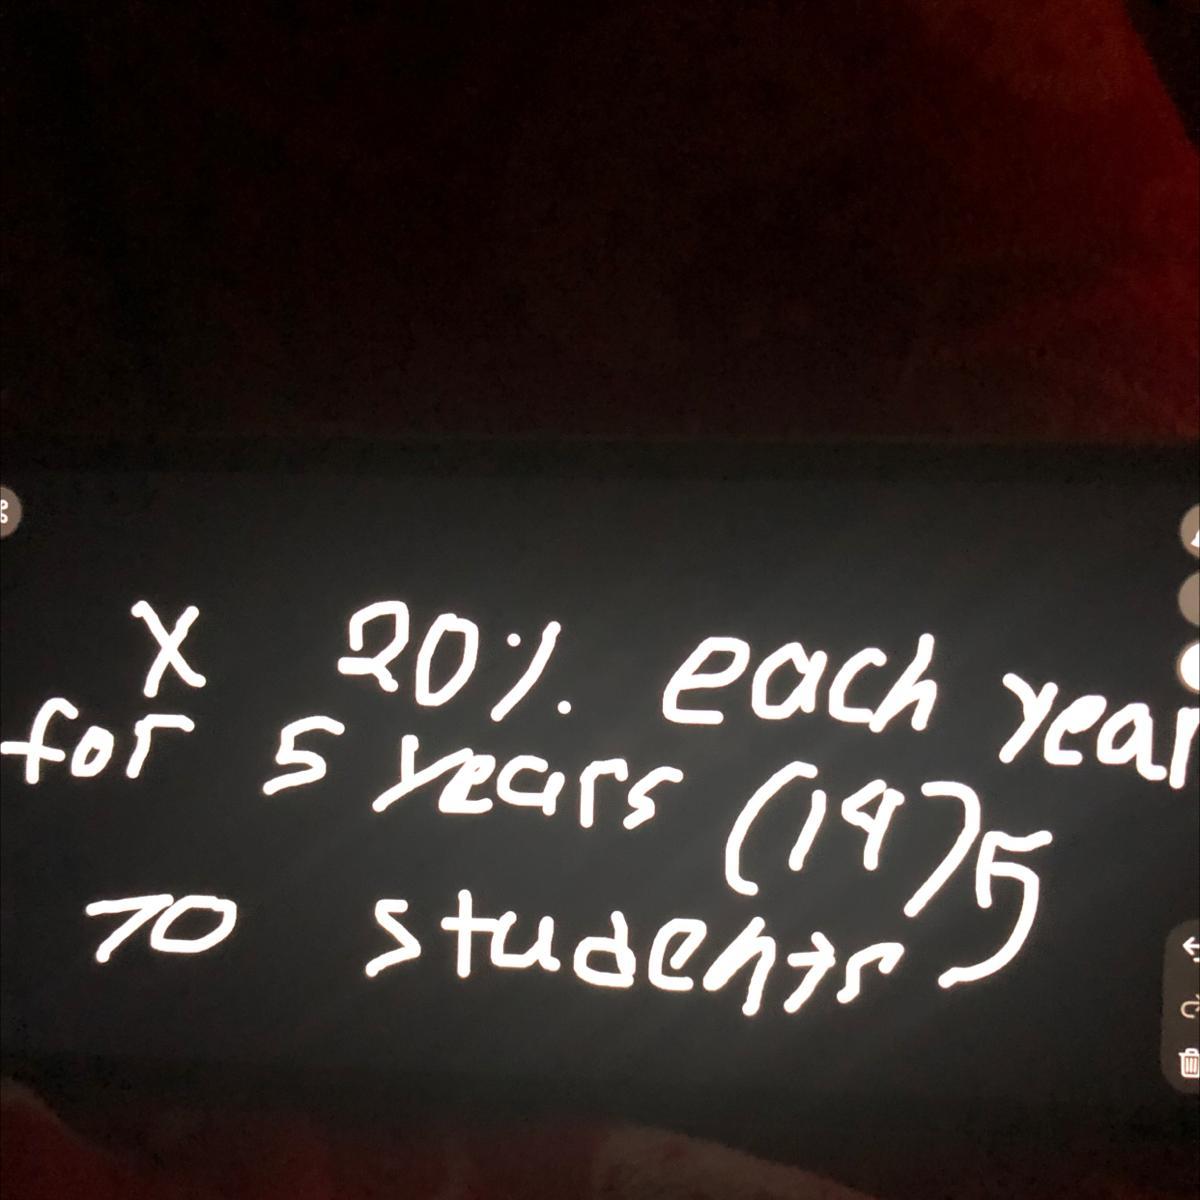 X 20% each year
for 5 years (14)5
70 students